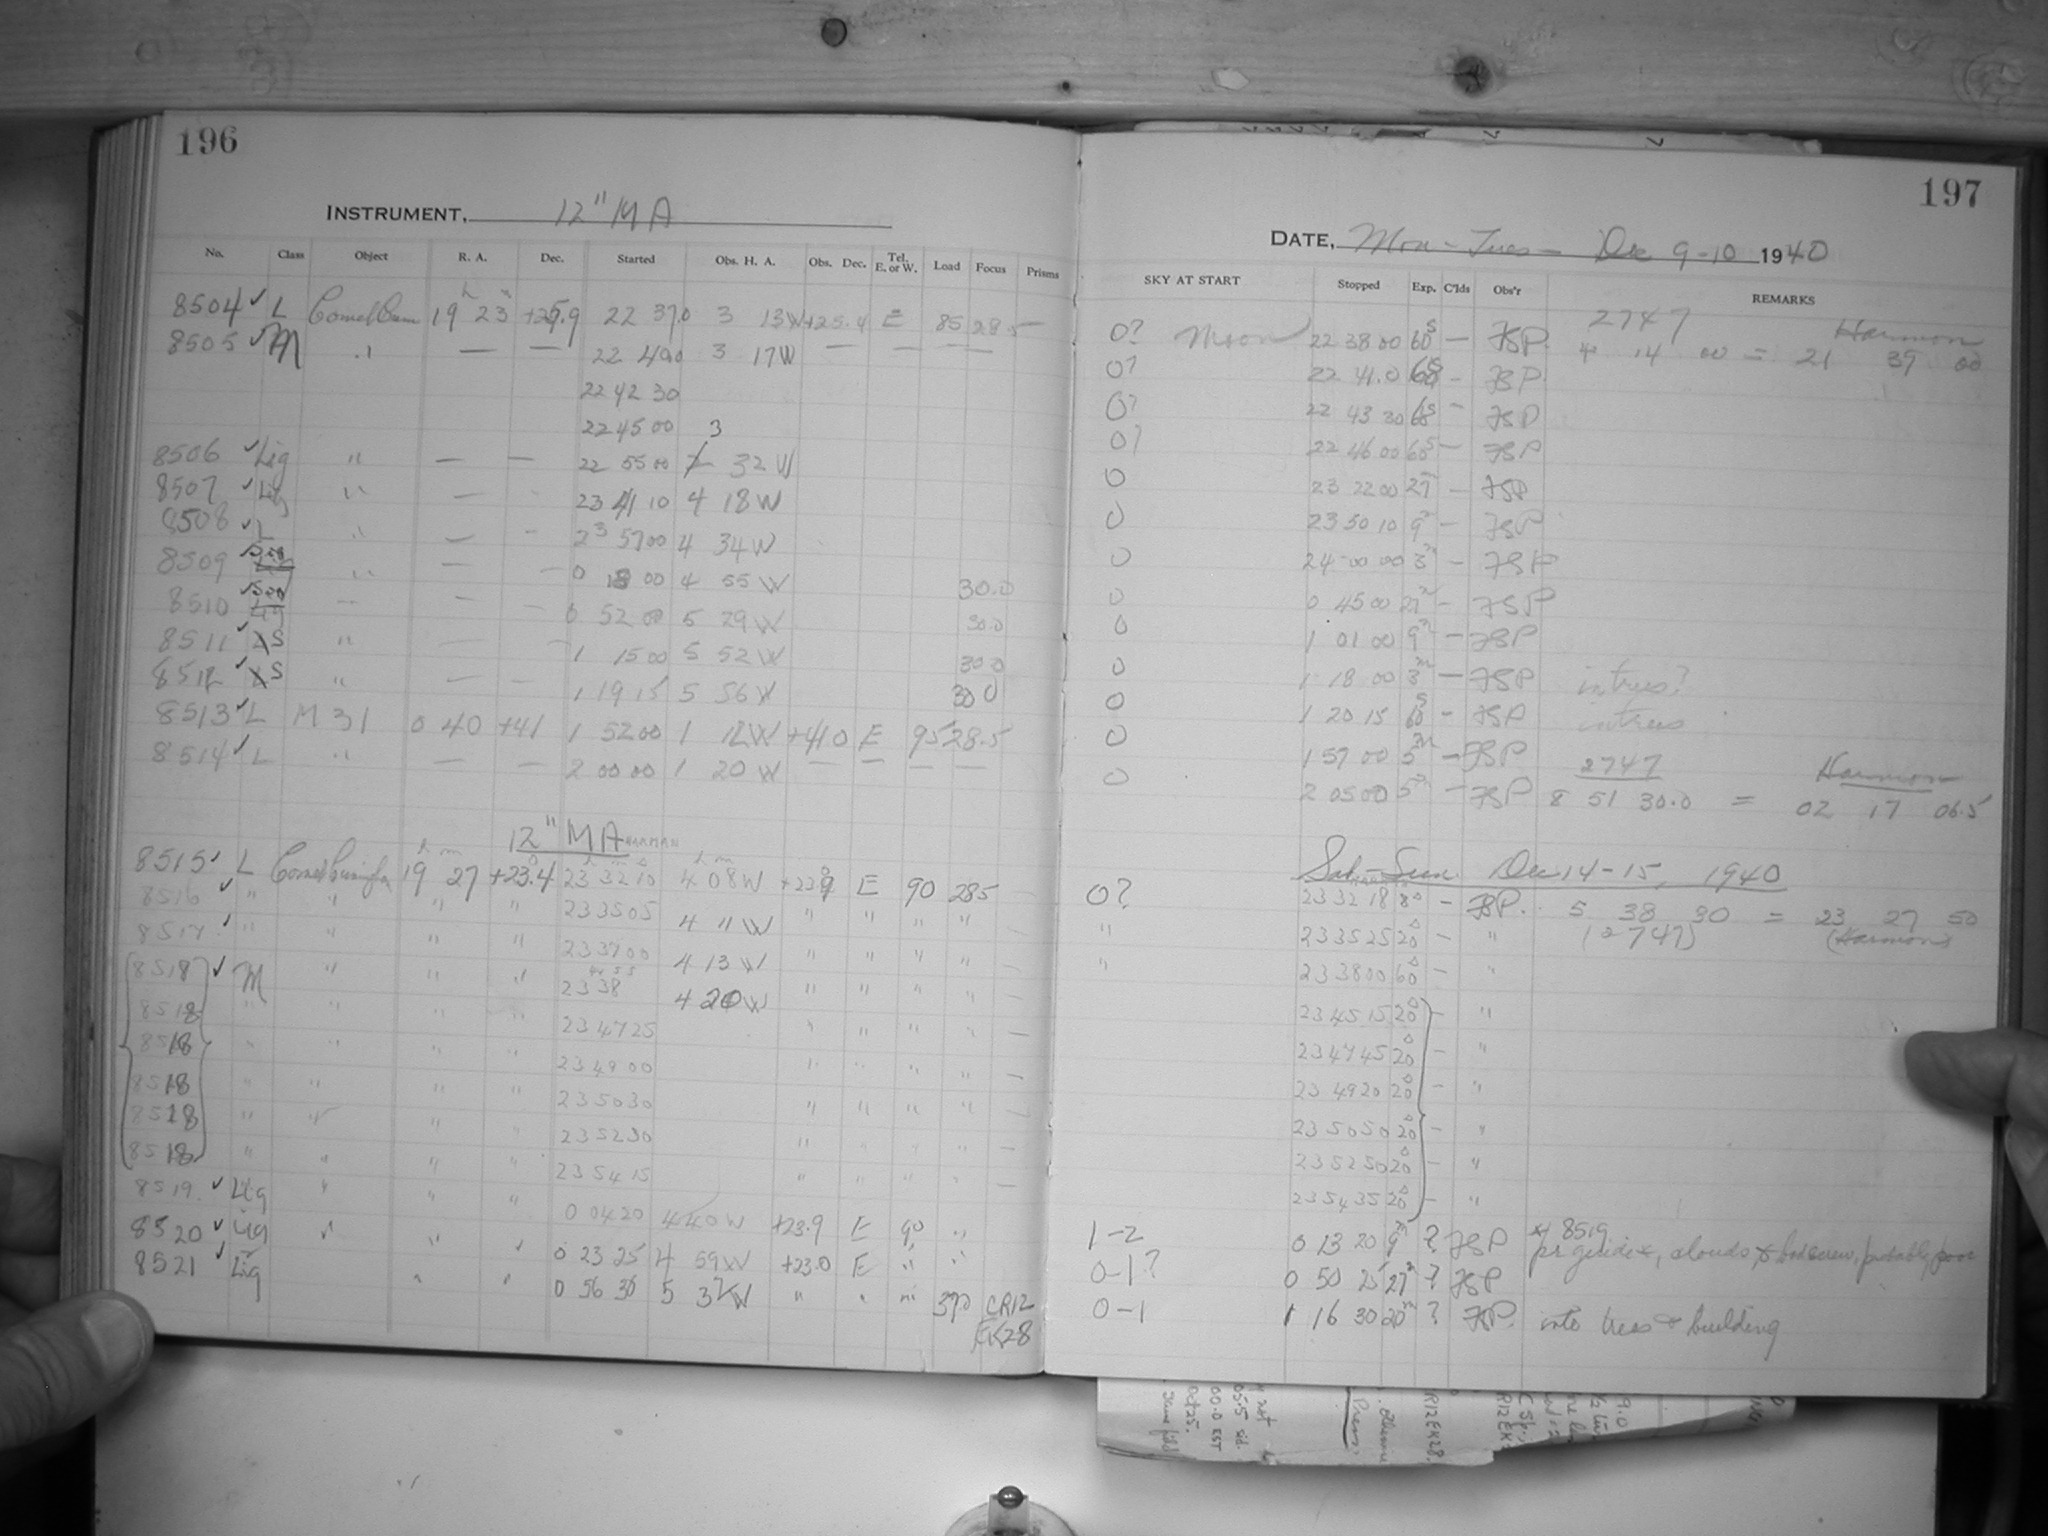 196
INSTRUMENT, 12" MA
No. Class Object R. A. Dec. Started Obs. H. A. Obs. Dec. Tel. E. or W. Load Focus Prisms
8504 ✓ L 19 23 22 37.0 3 13W +25.4 E 85 28.5 —
8505 ✓ M " — — 22 40.0 3 17W — — — —
22 42 30
22 45 00 3
8506 ✓ Lig " — — 22 55 00 32 W
8507 ✓ Lig " — - 23 41 10 4 18W
8508 ✓ L " — - 23 57 00 4 34W
8509 ✓ " — — 0 18 00 4 55 W 30.0
8510 ✓ — — — 0 52 00 5 29 W 30.0
8511 ✓ S " — — 1 15 00 5 52 W 30.0
8512 ✓ S " — — 1 19 15 5 56 W 30.0
8513 ✓ L M 31 0 40 +41 1 52 00 1 12W +41.0 E 95 28.5
8514 ✓ L " — — 2 00 00 1 20 W — — — —
12" MA HARMAN
8515 ✓ L 19 27 +23.4 23 32 10 4 08W E 90 28.5 —
8516 ✓ " " " " 23 35 05 4 11 W " " " " —
8517 ✓ " " " " 23 37 00 4 13 W " " " " —
8518 ✓ M " " " 23 38 4 20 W " " " " —
8518 " " " " 23 47 25 " " " " —
8518 " " " " 23 49 00 " " " " —
8518 " " " " 23 50 30 " " " " —
8518 " " " 23 52 30 " " " " —
8518 " " " " 23 54 15 " " " " —
8519 ✓ Lig " " " 0 04 20 4 40 W +23.9 E 90 "
8520 ✓ Lig " " " 0 23 25 4 59 W +23.0 E " "
8521 ✓ Lig " " 0 56 30 5 32W " " " 370 CR12
EK28
197
DATE, Mon - Tues - Dec 9-10 1940
SKY AT START Stopped Exp. C'lds Obs'r REMARKS
2747 Harmon
0? Moon 22 38 00 60s — FSP. 4 14 00 = 21 39 00
0? 22 41.0 60s - FSP.
0? 22 43 30 60s - FSP
0? 22 46 00 60s — FSP
0 23 22 00 27m — FSP
0 23 50 10 9m — FSP
0 24 00 00 3m — FSP
0 0 45 00 27m - FSP
0 1 01 00 9m — FSP
0 1 18 00 3m — FSP in trees?
0 1 20 15 60s - FSP in trees
0 1 57 00 5m — FSP 2747 Harmon
0 2 05 00 5m — FSP 8 51 30.0 = 02 17 06.5
Sat - Sun. Dec 14-15, 1940
0? 23 32 18 8s - FSP. 5 38 30 = 23 27 50
" 23 35 25 20s - " (2747) (Harmon)
" 23 38 00 60s - "
23 45 15 20s - "
23 47 45 20s - "
23 49 20 20s - "
23 50 50 20s - "
23 52 50 20s - "
23 54 35 20s - "
1-2 0 13 20 9m ? FSP * 8519
pr guide *, clouds bad screw, probably poor
0-1? 0 50 25 27m ? FSP
0-1 1 16 30 20m ? FSP. into trees & building